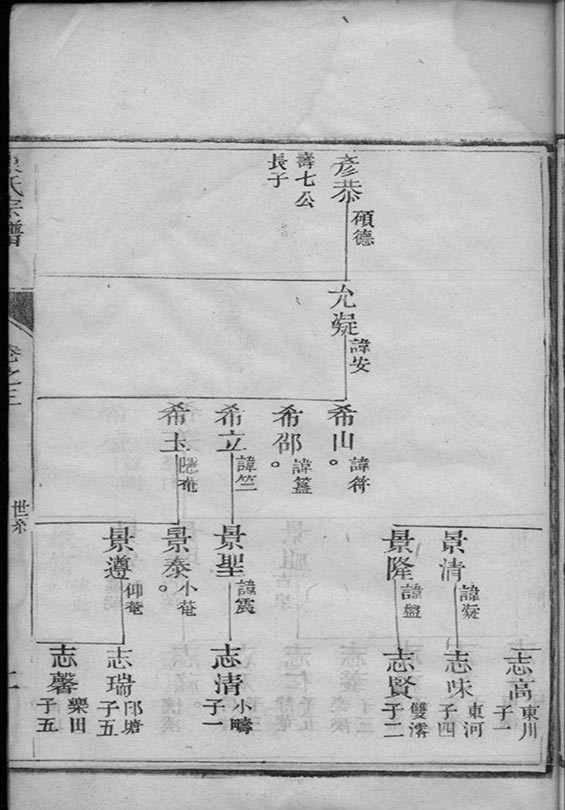 彥恭
碩德
壽七公
長子
允凝
諱安
希山。
諱符
希邵。
諱簋
希立
諱竺
希玉
隱菴
景清
諱凝
景隆
諱盤
景聖
諱震
景泰。
小菴
景遵
仰菴
志高
東川
子一
志味
東河
子四
志賢
雙澪
子二
志清
小疇
子一
志瑞
邱塘
子五
志馨
樂田
子五
氏宗譜
卷之三
世系